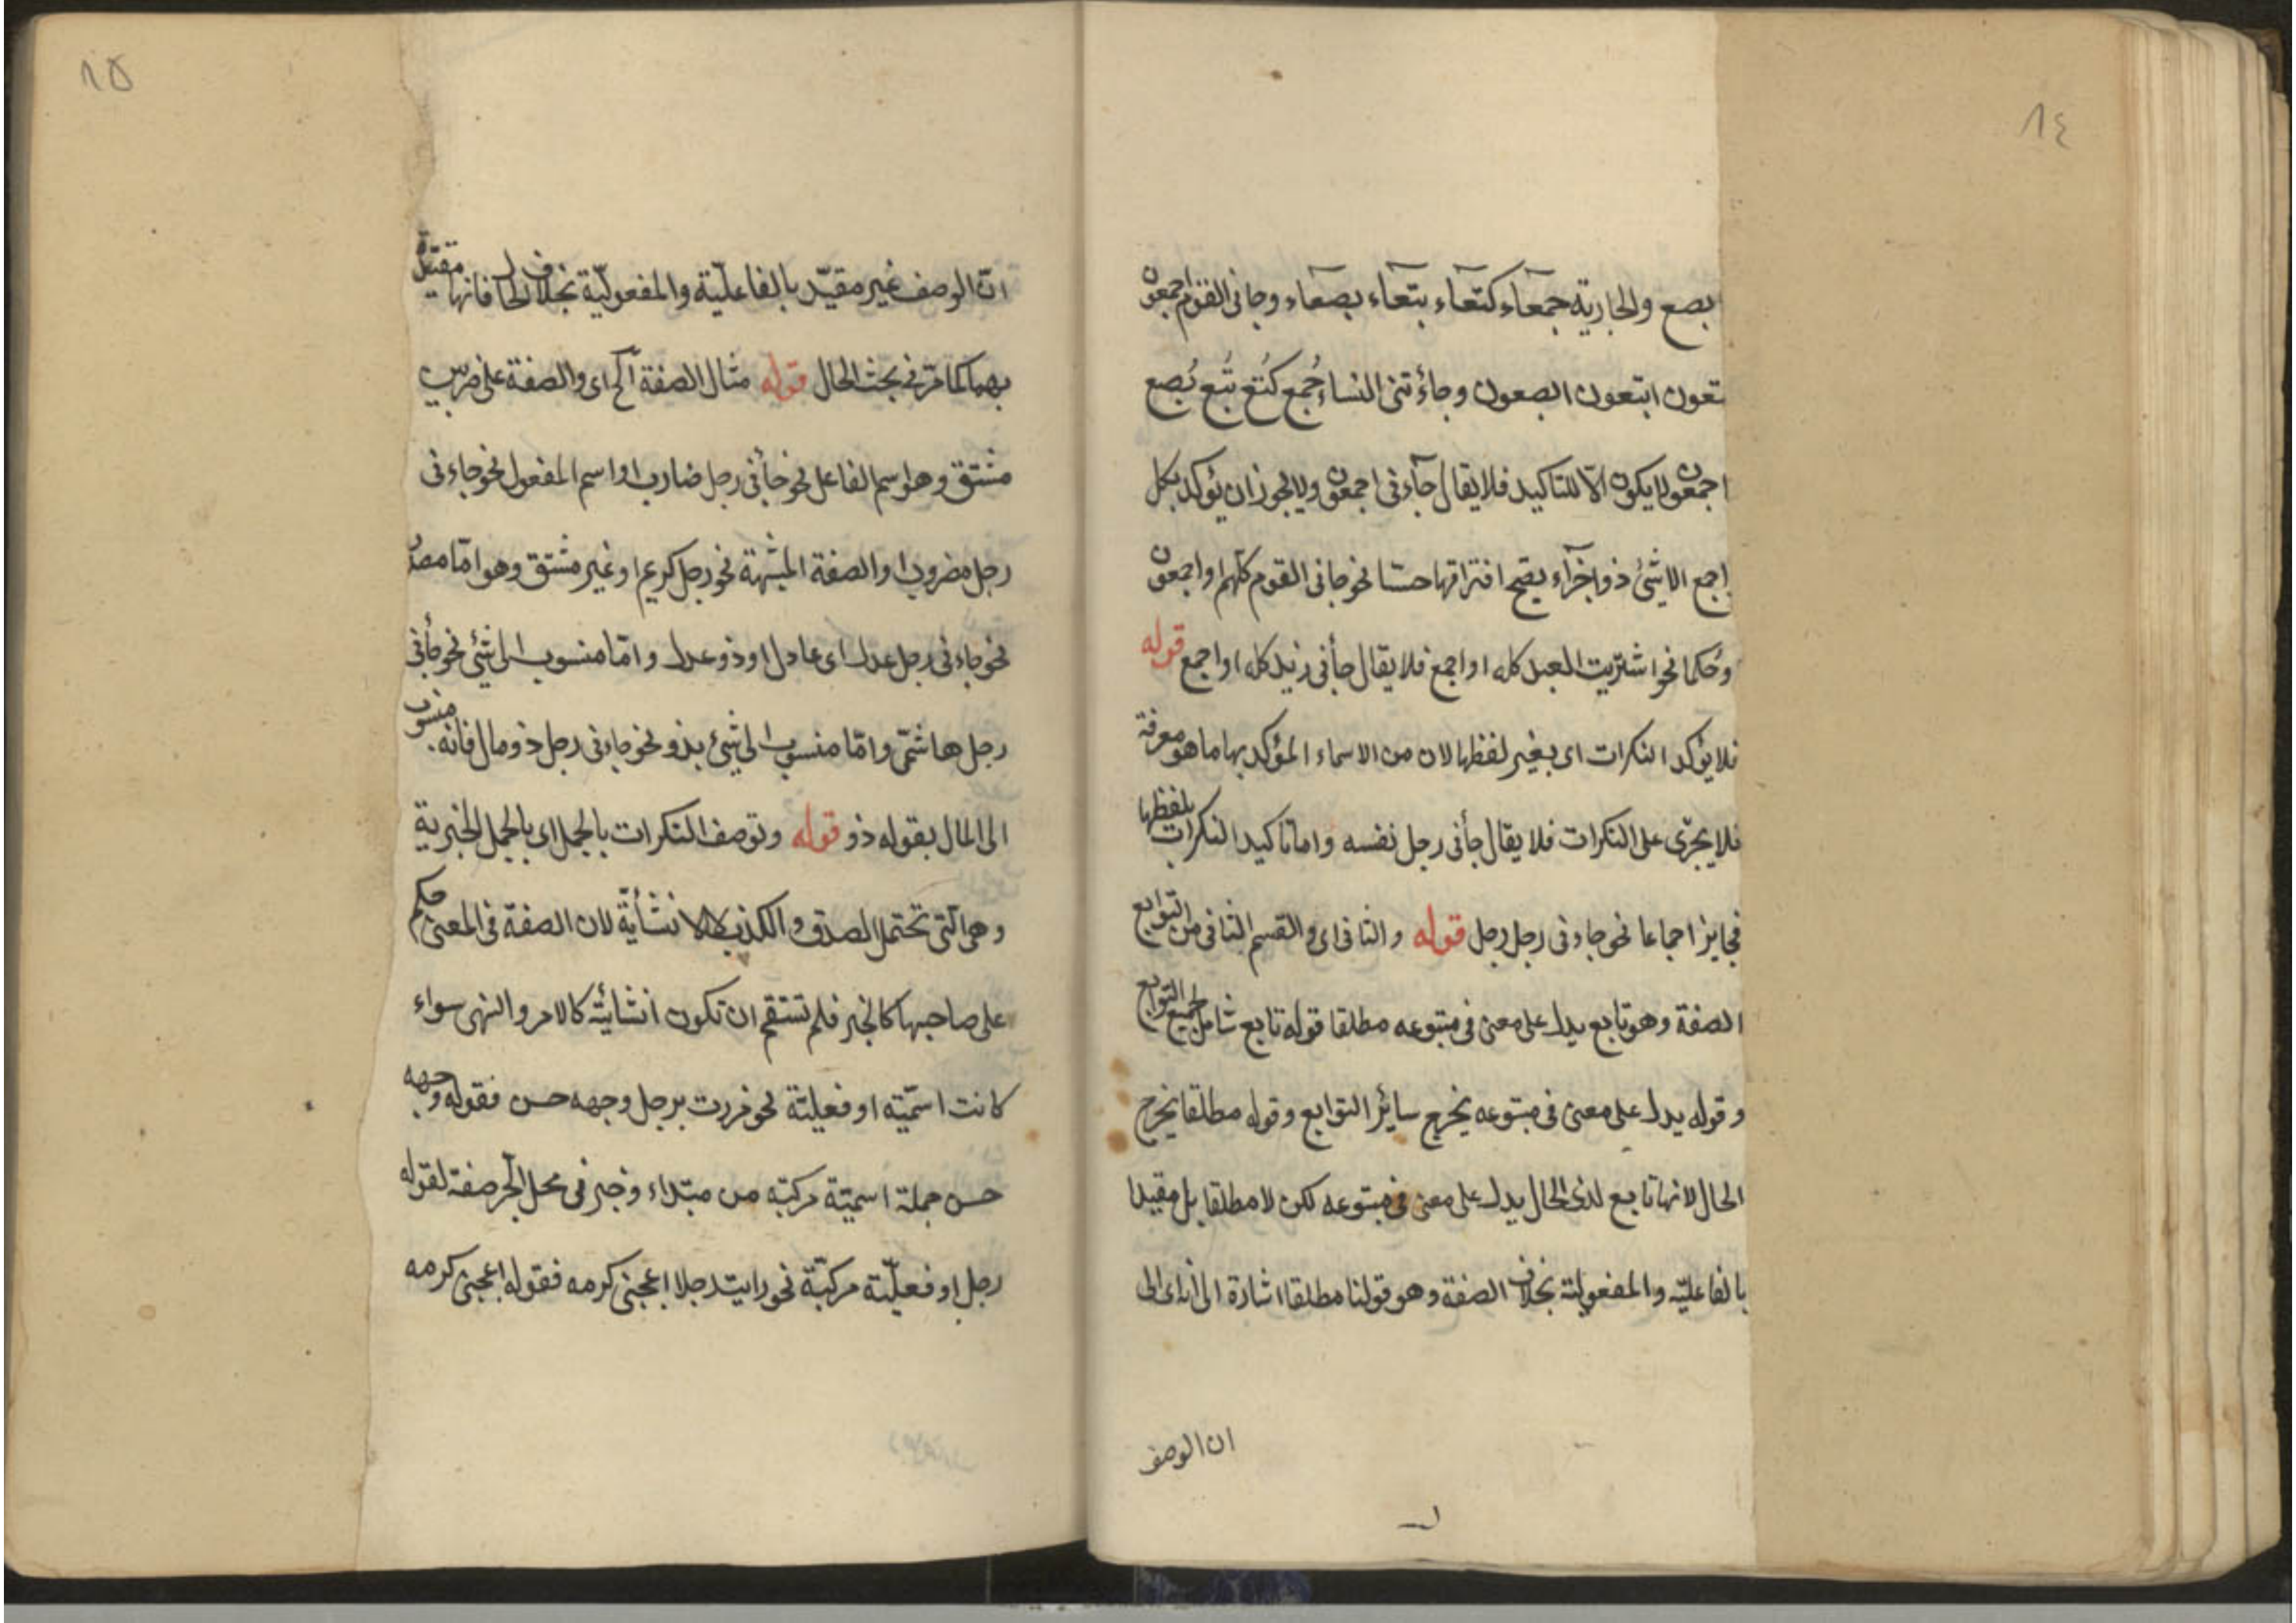 ٨٤
ابصع والجارية جمعآء كتعآء بتعآء بصعآء وجانى القوم اجمعون
تعون ابتعون ابصعون وجاءتنى النساء جُمع كُتع بُتع بُصع
اجمعون لا يكون الّا للتاكيد فلا يقال جآءنى اجمعون ولا يجوز ان يؤكد بكل
اجمع الا شئ ذو اجزآء يصح افتراقها حسّا نحو جانى القوم كلهم او اجمعون
وحكما نحو اشتريت العبد كله او اجمع فلا يقال جأنى زيد كله او اجمع قوله
فلا يؤكد النكرات اى بغير لفظها لان من الاسماء المؤكد بها ما هو معرفة
فلا يجرّى على النكرات فلا يقال جأنى رجل نفسه واما تاكيد النكرات بلفظها
فجايز اجماعا نحو جاءنى رجل رجل قوله والثانى اى والقسم الثانى من التوابع
الصفة وهو تابع يدل على معنى فى متبوعه مطلقا قوله تابع شامل لجميع التوابع
وقوله يدل على معنى فى متبوعه يخرج سائر التوابع وقوله مطلقا يخرج
الحال لانها تابع لذى الحال يدل على معنى فى متبوعه لكن لا مطلقا بل مقيدا
بالفاعليّة والمفعولية بخلاف الصفة وهو قولنا مطلقا اشارة الى انه اى الى
ان الوصف
٨٥
انّ الوصف غير مقيّد بالفاعليّة والمفعوليّة بخلاف الحال فانها مقيّدة
بهما كما مرّ فى بحث الحال قوله مثال الصفة آلخ اى والصفة على ضربين
مشتق وهو اسم الفاعل نحو جأنى رجل ضارب او اسم المفعول نحو جاءنى
رجل مضروب او الصفة المشبهة نحو رجل كريم او غير مشتق وهو امّا مصدر
نحو جاءنى رجل عدل اى عادل او ذو عدل وامّا منسوب الى شئ نحو جأنى
رجل هاشمّى وامّا منسوب الى شئ بذو نحو جاءنى رجل ذو مال فانه منسوب
الى المال بقوله ذو قوله وتوصف النكرات بالجمل اى بالجمل الخبرية
وهى الّتى تحتمل الصدق والكذب لا الانشأيّة لان الصفة فى المعنى حكم
على صاحبها كالخبر فلم تستقم ان تكون انشائيّة كالامر والنهى سواء
كانت اسميّة او فعلية نحو مررت برجل وجهه حسن فقوله وجهه
حسن جملة اسميّة مركبة من مبتداء وخبر فى محل الجر صفة لقوله
رجل او فعليّة مركبّة نحو رايت رجلا اعجبنى كرمه فقوله اعجبنى كرمه